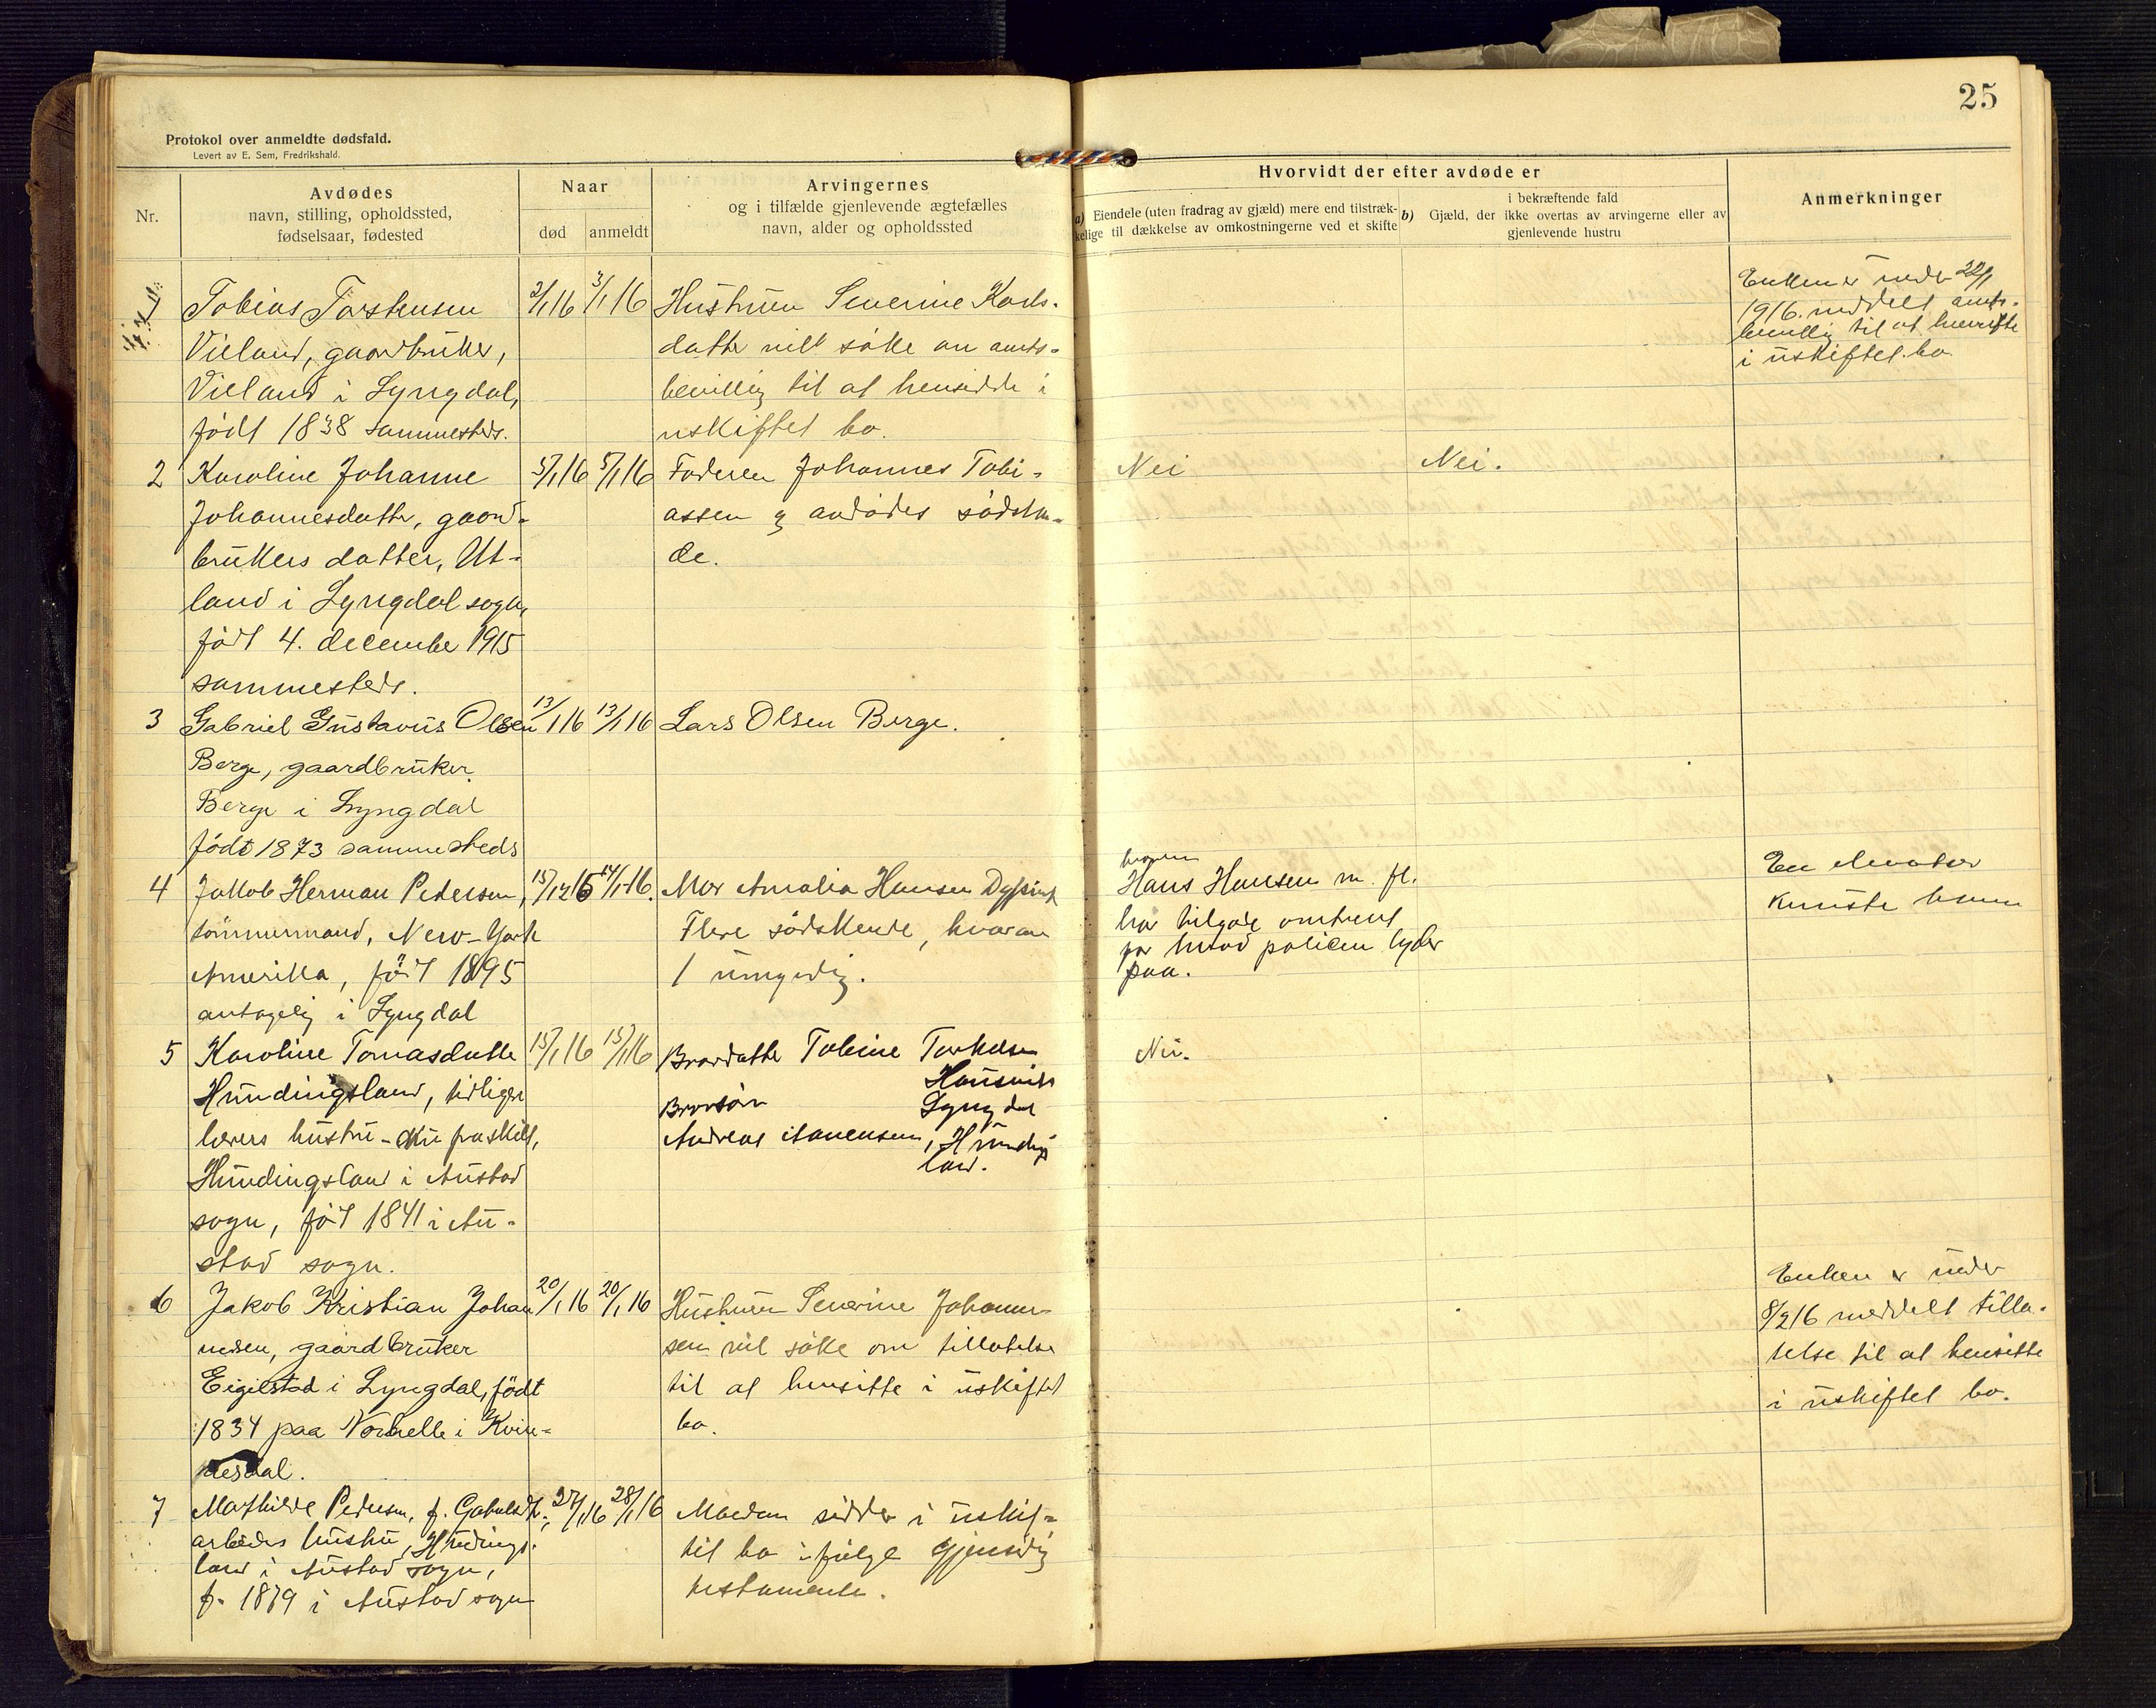 25
Protokol over anmeldte dødsfald.
Levert av E. Sem, Fredrikshald.
Nr.
Avdødes
navn, stilling, opholdssted,
fødselsaar, fødested
Naar
død
anmeldt
Arvingernes
og i tilfælde gjenlevende ægtefælles
navn, alder og opholdssted
Hvorvidt der efter avdøde er
a) Eiendele (uten fradrag av gjæld) mere end tilstræk-
kelige til dækkelse av omkostningerne ved et skifte
i bekræftende fald
b) Gjæld, der ikke overtas av arvingerne eller av
gjenlevende hustru
Anmerkninger
1
Tobias Torstensen
Vieland, gaardbruker,
Vieland i Lyngdal,
født 1838 sammesteds.
2/1 16
3/1 16
Hustruen Severine Karls-
datter vil søke om amts-
bevillig til at hensidde i
uskiftet bo.
Enken er under 22/1
1916 meddelt amts-
bevillig til at hensitte
i uskiftet bo.
2
Karoline Johanne
Johannesdatter, gaard-
brukers datter, Ut-
land i Lyngdal sogn,
født 4. december 1915
sammesteds.
5/1 16
5/1 16
Faderen Johannes Tobi-
assen og avdødes sødsken-
de.
Nei
Nei.
3
Gabriel Gustavus Olsen
Berge, gaardbruker
Berge i Lyngdal
født 1873 sammesteds
13/1 16
13/1 16
Lars Olsen Berge.
4
Jakob Herman Pedersen,
tømmermand, New-York
Amerika, født 1895
antagelig i Lyngdal
15/12 15
14/1 16.
Mor Amalia Hansen
Flere sødskende, hvorav
1 umyndig.
Hans Hansen m. fl.
har tilgode omtrent
hvad policen lyder
paa.
En elevator
knuste
5
Karoline Tomasdatter
Hundingsland, tidligere
lærers hustru - nu fraskilt,
Hundingsland i Austad
sogn, født 1841 i Au-
stad sogn.
15/1 16
15/1 16
Brordatter Tobine
Lyngdal
Brorsøn
Andreas
Hundings
land.
Nei.
6
Jakob Kristian Johan
nesen, gaardbruker
Eigilstad i Lyngdal, født
1834 paa i Kvin-
nesdal.
20/1 16
20/1 16
Hustruen Severine Johannes-
sen vil søke om tillatelse
til at hensitte i uskiftet
bo.
Enken er under
8/2 16 meddelt tilla-
telse til at hensitte
i uskiftet bo.
7
Mathilde Pedersen, f.
arbeiders hustru, Hundings-
land i Austad sogn,
f. 1879 i Austad sogn
27/1 16
28/1 16
Manden sidder i uskif-
tet bo ifølge gjensidig
testamente.